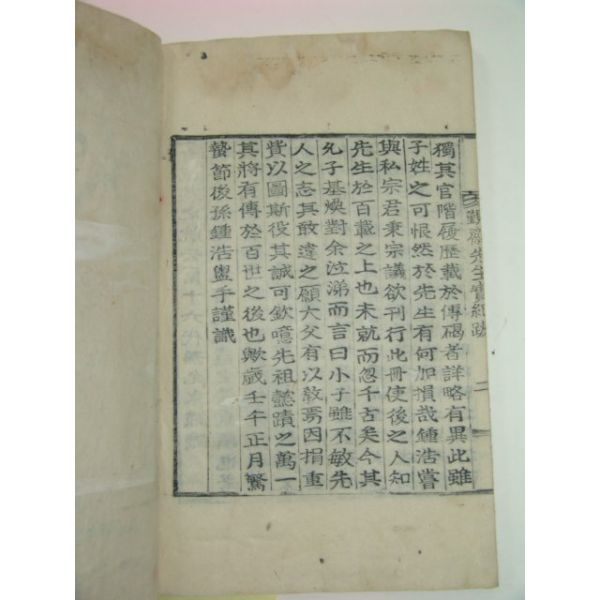 獨其官階履歷載於傳碣者詳略有異此雖
子姓之可恨然於先生有何加損哉鍾浩嘗
與私宗君秉宗議欲刊行此冊使後之人知
先生於百載之上也未就而忽千古矣今其
允子基煥對余泣涕而言曰小子雖不敏先
人之志其敢違之願大父有以敎焉因捐重
貲以圖斯役其誠可欽噫先祖懿蹟之萬一
其將有傳於百世之後也歟歲壬午正月驚
蟄節後孫鍾浩盥手謹識
先生實紀跋
二